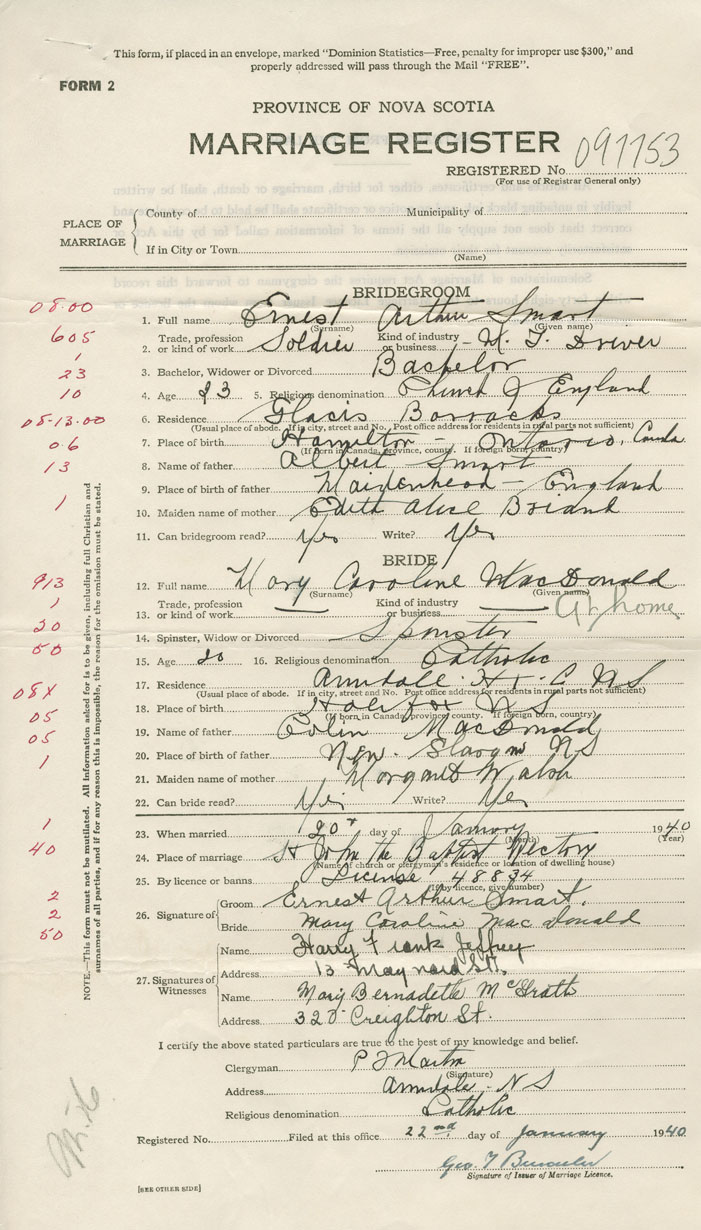 This form, if placed in an envelope, marked "Dominion Statistics—Free, penalty for improper use $300," and
properly addressed will pass through the Mail "FREE".
FORM 2
PROVINCE OF NOVA SCOTIA
MARRIAGE REGISTER
REGISTERED No. 091153
(For use of Registrar General only)
PLACE OF MARRIAGE
County of Municipality of
If in City or Town
(Name)
BRIDEGROOM
08.00
1. Full name Ernest Arthur Smart
(Surname) (Given name)
605
2. Trade, profession or kind of work Soldier Kind of industry or business - M. T. Driver
1
3. Bachelor, Widower or Divorced Bachelor
23
4. Age 23 5. Religious denomination Church of England
10
6. Residence Glacis Barracks
(Usual place of abode. If in city, street and No. Post office address for residents in rural parts not sufficient)
08-13.00
7. Place of birth Hamilton - Ontario, Canada
(If born in Canada, province, county. If foreign born, country)
06
8. Name of father Albert Smart
13
9. Place of birth of father Maidenhead - England
10. Maiden name of mother Edith Alice
1
11. Can bridegroom read? Yes Write? Yes
BRIDE
913
12. Full name Mary Caroline MacDonald
(Surname) (Given name)
1
13. Trade, profession or kind of work — Kind of industry or business — At home
20
14. Spinster, Widow or Divorced Spinster
50
15. Age 20 16. Religious denomination Catholic
17. Residence Armdale Hx. C N S
(Usual place of abode. If in city, street and No. Post office address for residents in rural parts not sufficient)
08X
18. Place of birth Halifax N S
(If born in Canada, province, county. If foreign born, country)
05
19. Name of father Colin MacDonald
05
20. Place of birth of father New Glasgow N S
1
21. Maiden name of mother Margaret Walsh
22. Can bride read? Yes Write? Yes
1
23. When married 20th day of January 1940
(Month) (Year)
40
24. Place of marriage St John the Baptist Rectory
(Name of church or clergyman's residence or location of dwelling house)
25. By licence or banns License 48834
(If by licence, give number)
2
26. Signature of
Groom Ernest Arthur Smart.
2
Bride Mary Caroline MacDonald
50
27. Signatures of Witnesses
Name Harry Frank Jeffrey
Address 13 Maynard St.
Name Mary Bernadette McGrath
Address 320 Creighton St.
NOTE.—This form must not be mutilated. All information asked for is to be given, including full Christian and
surnames of all parties, and if for any reason this is impossible, the reason for the omission must be stated.
I certify the above stated particulars are true to the best of my knowledge and belief.
Clergyman P J Martin
(Signature)
Address Armdale - N S
Religious denomination Catholic
Registered No. Filed at this office 22nd day of January 1940
Geo. T
Signature of Issuer of Marriage Licence.
[SEE OTHER SIDE]